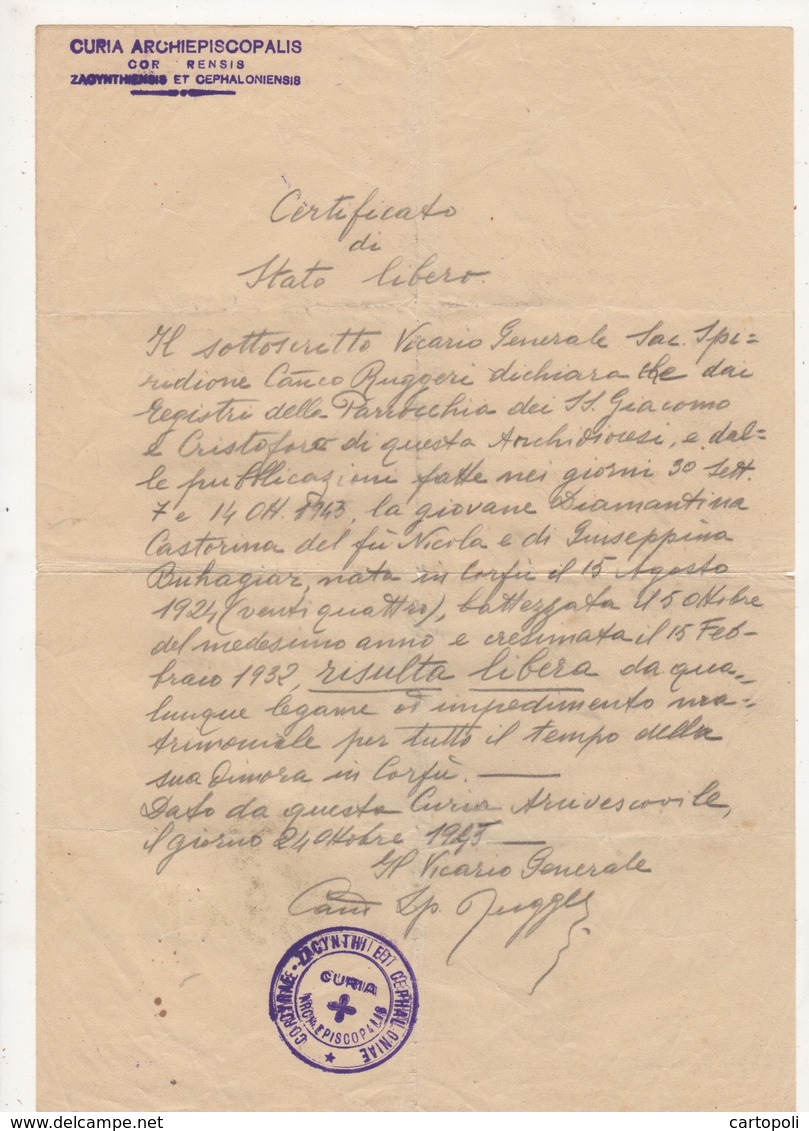 CURIA ARCHIEPISCOPALIS
COR RENSIS
ZACYNTHIENSIS ET CEPHALONIENSIS
Certificato
di
Stato libero.
Il sottoscritto Vicario Generale Sac. Spi=
ridione Ruggeri dichiara che dai
registri della Parrocchia dei SS. Giacomo
e Cristoforo di questa Archidiocesi, e dal=
le pubblicazioni fatte nei giorni 30 Sett.
7 e 14 Ott. la giovane Diamantina
Castorina del fù Nicola e di Giuseppina
Buhagiar, nata in Corfù il 15 Agosto
1924 (ventiquattro), battezzata il 5 Ottobre
del medesimo anno e cresimata il 15 Feb-
braio 1932, risulta libera da qua=
lunque legame od impedimento ma=
trimoniale per tutto il tempo della
sua dimora in Corfù. —
Dato da questa Curia Arcivescovile,
il giorno 24 Ottobre —
Il Vicario Generale
Sp. Rugger
CORCYRAE · ZACYNTHI ET CEPHALONIAE
CURIA
ARCHIEPISCOPALIS
www.delcampe.net
cartopoli